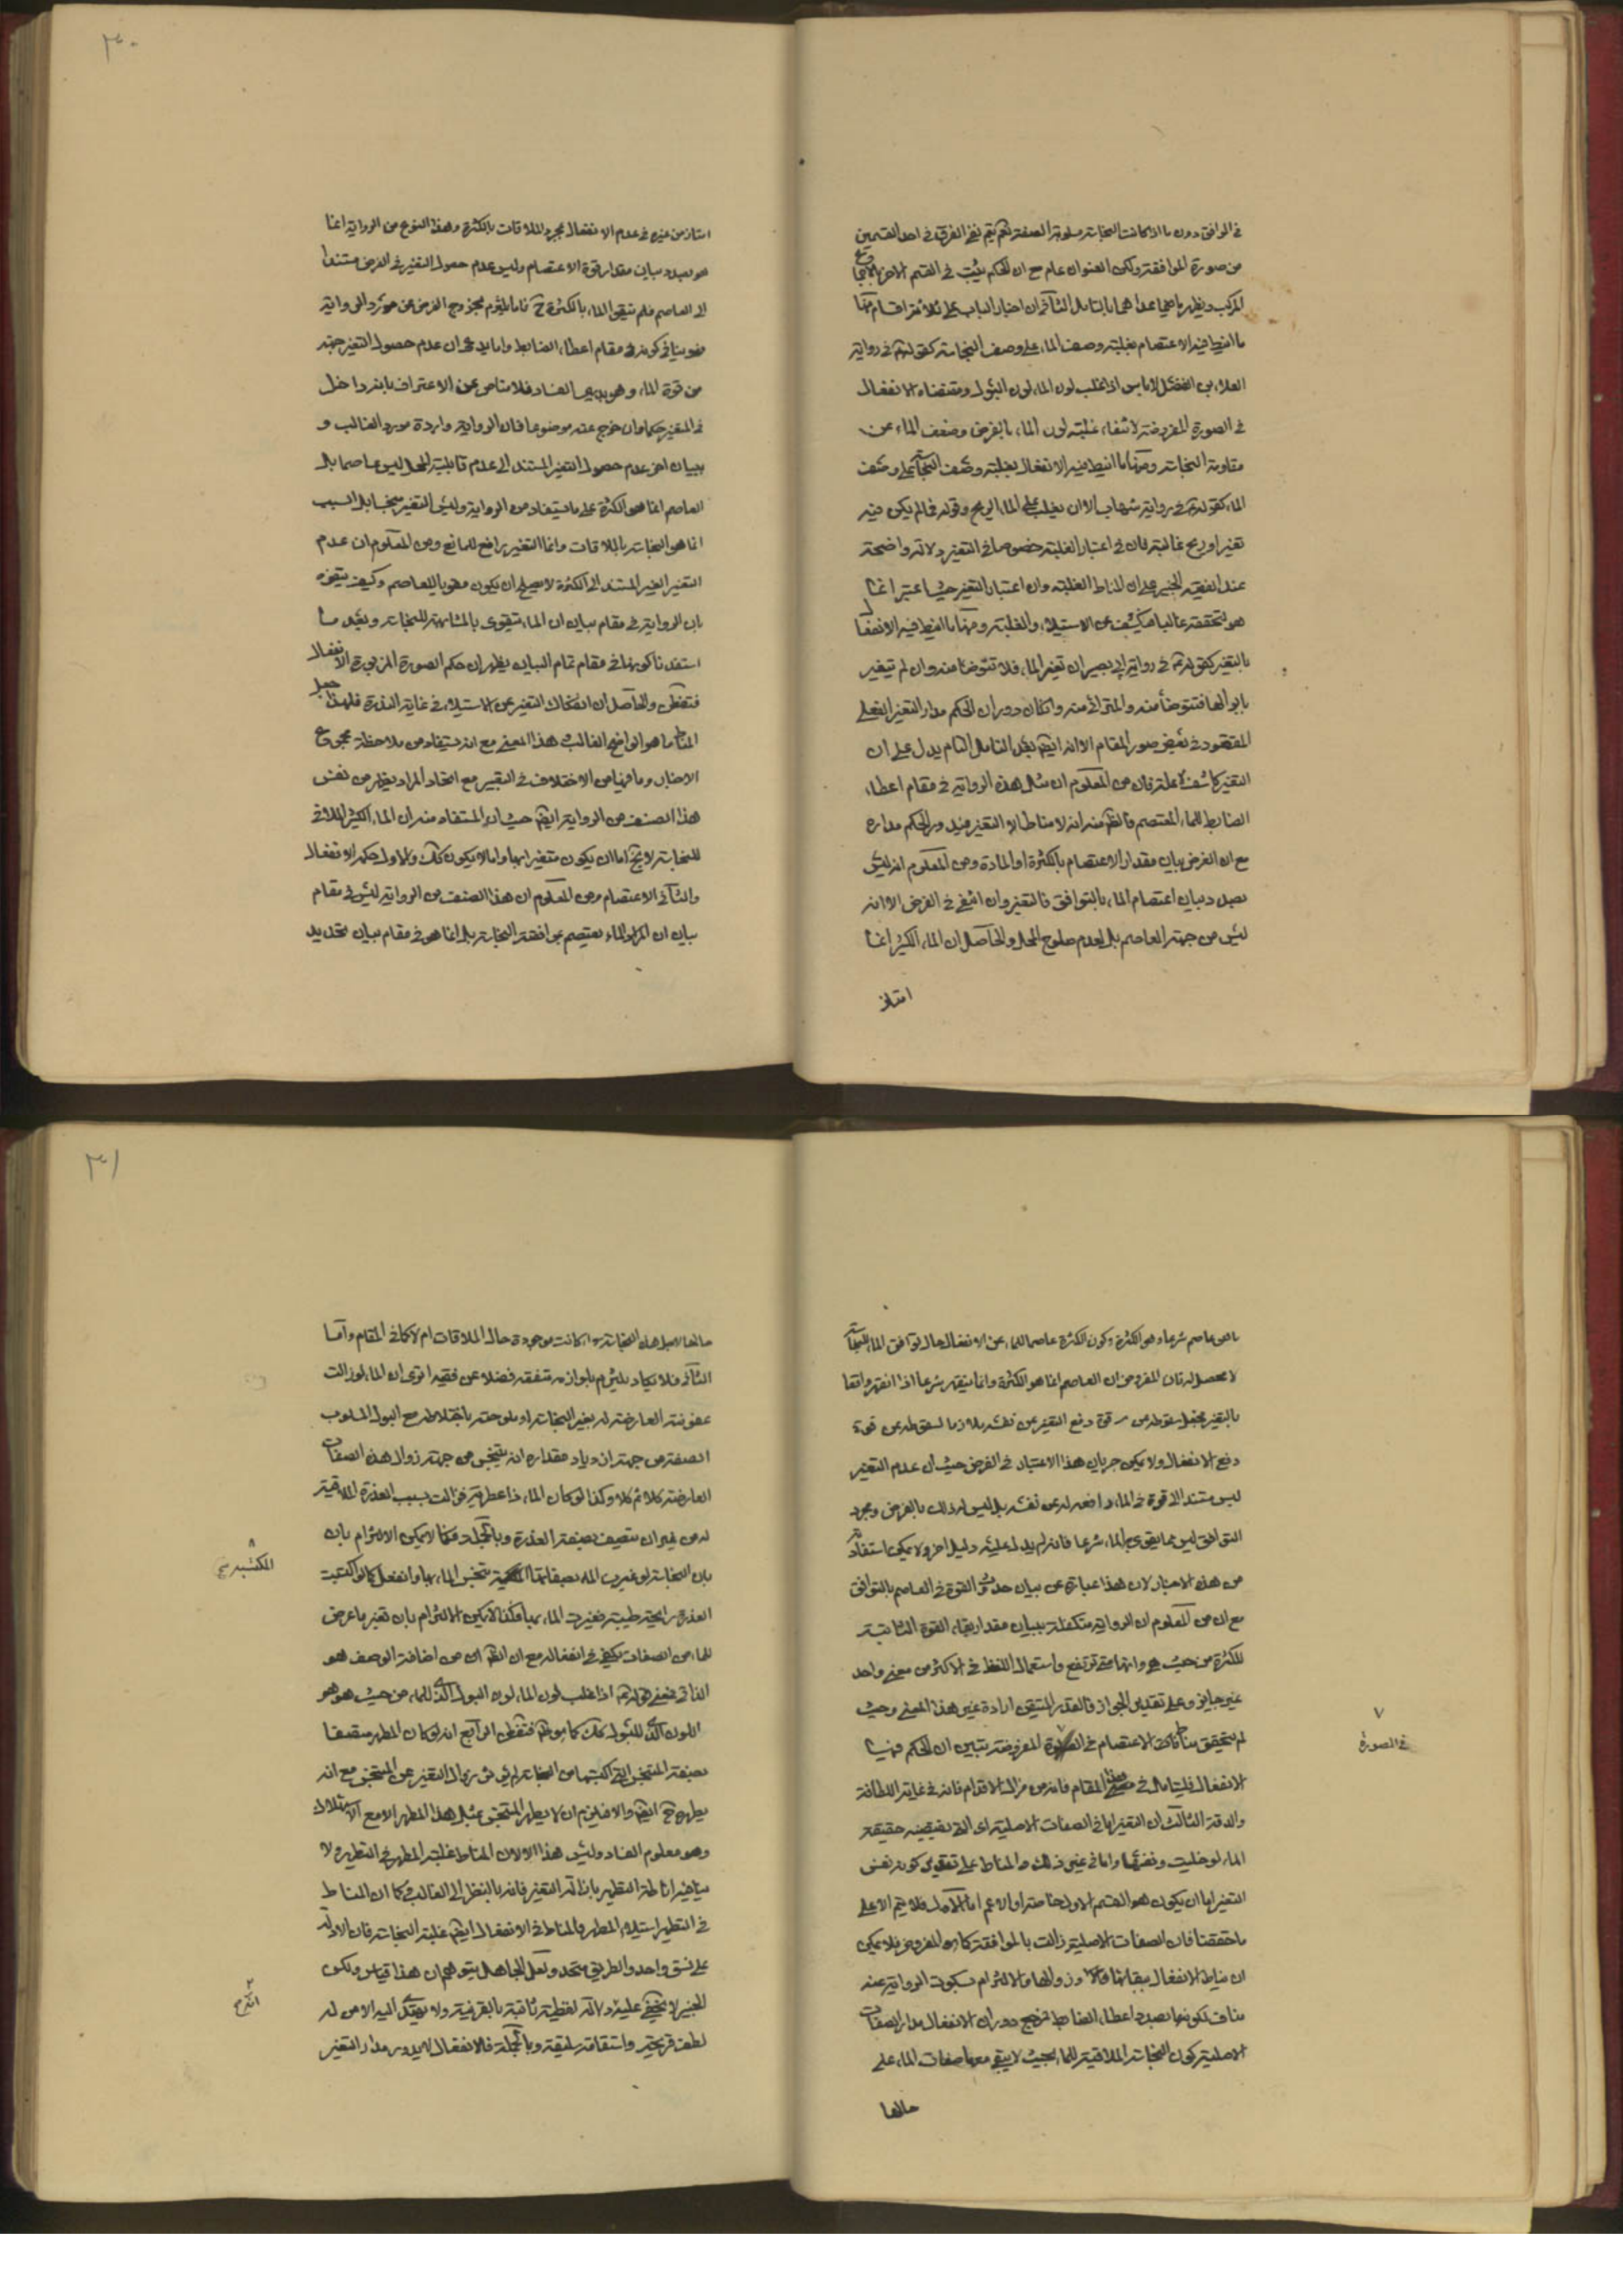 ٣٠
في الوافق دون ما اذا كانت النجاسة مسلوبة الصفة نعم يتم نفي الفرق في احد القسمين
من صورة الموافقة ولكن العنوان عام مع ان الحكم يثبت في القسم الاخر بالاجماع
المركب ويظهر ما فيما عداهما بالتامل الثاني ان اخبار الباب على ثلاثة اقسام منها
ما انيط فيه الاعتصام بغلبة وصف الماء على وصف النجاسة كقوله في رواية
العلاء بن الفضيل لا باس اذا غلب لون الماء لون البول ومقتضاه الانفعال
في الصورة المفروضة لانتفاء غلبة لون الماء بالفرض وضعف الماء عن
مقاومة النجاسة ومنها ما انيط فيه الانفعال بغلبة وصف النجاسة على وصف
الماء كقوله في رواية شهاب الا ان يغلب على الماء الريح وقوله فما لم يكن فيه
تغير او ريح غالبة فان في اعتبار الغلبة خصوصا في التغير دلالة واضحة
عند الفقيه الخبير على ان المناط الغلبة وان اعتبار التغير حيثما اعتبر انما
هو لتحققه غالبا مما يكشف عن الاستيلاء والغلبة ومنها ما انيط فيه الانفعال
بالتغير كقوله في رواية ابي بصير ان تغير الماء فلا تتوضا منه وان لم تغيره
ابوالها فتتوضأ منه والمترائى منه وان كان دوران الحكم مدار التغير الفعلي
المفقود في بعض صور المقام الا انه ايضا بعد التامل التام يدل على ان
التغير كاشف لا علة فان من المعلوم ان مثل هذه الرواية في مقام اعطاء
الضابط للماء المعتصم فالظ منه انه لا مناط الا التغير فيدور الحكم مداره
مع ان الغرض بيان مقدار الاعتصام بالكثرة او المادة ومن المعلوم انه ليس
بصدد بيان اعتصام الماء بالتوافق فالتغير وان انتفى في الفرض الا انه
ليس من جهة العاصم بل لعدم صلوح المحل والحاصل ان الماء الكثير انما
امتاز
امتاز من غيره في عدم الانفعال بمجرد الملاقات بالكثرة وهذا النوع من الرواية انما
هو بصدد بيان مقدار قوة الاعتصام وليس عدم حصول التغير في الفرض مستندا
الى العاصم فلم يتقو الماء بالكثرة ح فاما يلتزم بخروج الفرض عن مورد الرواية
فهو ينافي كونه في مقام اعطاء الضابط واما يدعى ان عدم حصول التغير جهة
من قوة الماء وهو بديهي الفساد فلا مناص عن الاعتراف بانه داخل
في المتغير حكما وان خرج عنه موضوعا فان الرواية واردة مورد الغالب و
ببيان اخر عدم حصول التغير المستند الى عدم قابلية المحل ليس عاصما بل
العاصم انما هو الكثرة على ما يستفاد من الرواية وليس التغير منجسا بل السبب
انما هو النجاسة بالملاقات وانما التغير رافع للمانع ومن المعلوم ان عدم
التغير الغير المستند الى الكثرة لا يصلح ان يكون مقويا للعاصم وكيف يتفوه
بان الرواية في مقام بيان ان الماء يتقوى بالمشابهة للنجاسة وبعد ما
استفدنا كونها في مقام تمام البيان يظهر ان حكم الصورة المزبورة الانفعال
فتفطن والحاصل ان انفكاك التغير عن الاستيلاء في غاية الندرة فلهذا جعل
المناط ما هو الواضح الغالب هذا المعنى مع انه يستفاد من ملاحظة مجموع
الاخبار وما فيها من الاختلاف في التعبير مع اتحاد المراد يظهر من نفس
هذا الصنف من الرواية ايضا حيث ان المستفاد منه ان الماء الكثير الملاقي
للنجاسة لا يخ اما ان يكون متغيرا بها واما لا يكون كك والاول حكمه الانفعال
والثاني الاعتصام ومن المعلوم ان هذا الصنف من الرواية ليس في مقام
بيان ان الكر والماء يعتصم بموافقة النجاسة بل انما هو في مقام بيان تحديد
٣١
ما هو عاصم شرعا وهو الكثرة وكون الكثرة عاصما للماء عن الانفعال حال توافق الماء للنجاسة
لا محصل له فان المفروض ان العاصم انما هو الكثرة وانما ينقهر شرعا اذا انقهر واقعا
بالتغير فجعل سقوطه من قوة دفع التغير عن نفسه ملازما لسقوطه عن قوة
دفع الانفعال ولا يمكن جريان هذا الاعتبار في الفرض حيث ان عدم التغير
ليس مستندا الى قوة في الماء دافعة له عن نفسه بل ليس له ذلك بالفرض ومجرد
التوافق ليس مما يقوى به الماء شرعا فانه لم يدل عليه دليل اخر ولا يمكن استفادته
من هذه الاخبار لان هذا عبارة عن بيان حدوث القوة في العاصم بالتوافق
مع ان من المعلوم ان الرواية متكفلة ببيان مقدار بقاء القوة الثابتة
للكثرة من حيث هو وانها متى ترتفع واستعمال اللفظ في الاكثر من معنى واحد
غير جايز وعلى تقدير الجواز فالقدر المتيقن ارادة غير هذا المعنى وحيث
لم يتحقق مناط الاعتصام في المفروضة يتبين ان الحكم فيها
٧
في الصورة
الانفعال فليتامل في هذا المقام فانه من مزال الاقدام فانه في غاية اللطافة
والدقة الثالث ان التغير اما في الصفات الاصلية اى التى يقتضيه حقيقة
الماء لو خليت ونفسها واما في غير ذلك والمناط على تقدير كونه نفس
التغير اما ان يكون هو القسم الاول خاصة او الاعم اما الاول فلا يتم الا على
ما حققنا فان الصفات الاصلية زالت بالموافقة كما هو المفروض فلا يمكن
ان يناط الانفعال ببقائها وزوالها والالتزام بسكوت الرواية عنه
مناف لكونها بصدد اعطاء الضابط فمرجع دوران الانفعال مدار الصفات
الاصلية كون النجاسة الملاقية للماء بحيث لا يبقى معها صفات الماء على
حالها
حالها لاجل هذه النجاسة سواء كانت موجودة حال الملاقات ام لا كما في المقام واما
الثاني فلا يكاد يلتزم بلوازمه متفقه فضلا عن فقيه اترى ان الماء لو زالت
عفونته العارضة له بغير النجاسة او ملوحته باختلاطه مع البول المسلوب
الصفة من جهة ازدياد مقداره انه يتنجس من جهة زوال هذه الصفات
العارضة كلا ثم كلا وكذا لو كان الماء ذا عطرية فزالت بسبب العذرة الملاقية
له من غير ان يتصف بصفة العذرة وبالجملة فكما لا يمكن الالتزام بان
بان النجاسة لو غيرت الماء بصفاتها تنجس الماء بها وانفعل كما لو اكتسبت
٨
المكتسبة
العذرة رايحة طيبة فغيرت الماء بها فكذا لا يمكن الالتزام بان تغير ما عرض
للماء من الصفات يكفي في انفعاله مع ان الظ ان من اضافة الوصف هو
الذاتي فمعنى قوله اذا غلب لون الماء لون البول الذى للماء من حيث هو هو
اللون الذى للبول كك كما هو ظ فتفطن الرابع انه لو كان المطهر متصفا
بصفة المتنجس التي اكتسبها من النجاسة لم يؤثر في زوال التغير عن المتنجس مع انه
يطهره ح ايضا والا فيلزم ان لا يطهر المتنجس بمثل هذا المطهر الا مع الاستهلاك
وهو معلوم الفساد وليس هذا الا لان المناط غلبة المطهر في التطهير ولا
ينافيه اناطة التطهير بازالة التغير فانه بالنظر الى الغالب فكما ان المناط
في التطهير استيلاء المطهر والمناط في الانفعال ايضا غلبة النجاسة فان الادلة
على نسق واحد والطريق متحد ولعل الجاهل يتوهم ان هذا قياس ولكن
الخبير لا يخفى عليه دلالة لفظية ثابتة بالقرينة ولا يهتدى اليه الا من له
لطف قريحة واستقامة سليقة وبالجملة فالانفعال لا يدور مدار التغير